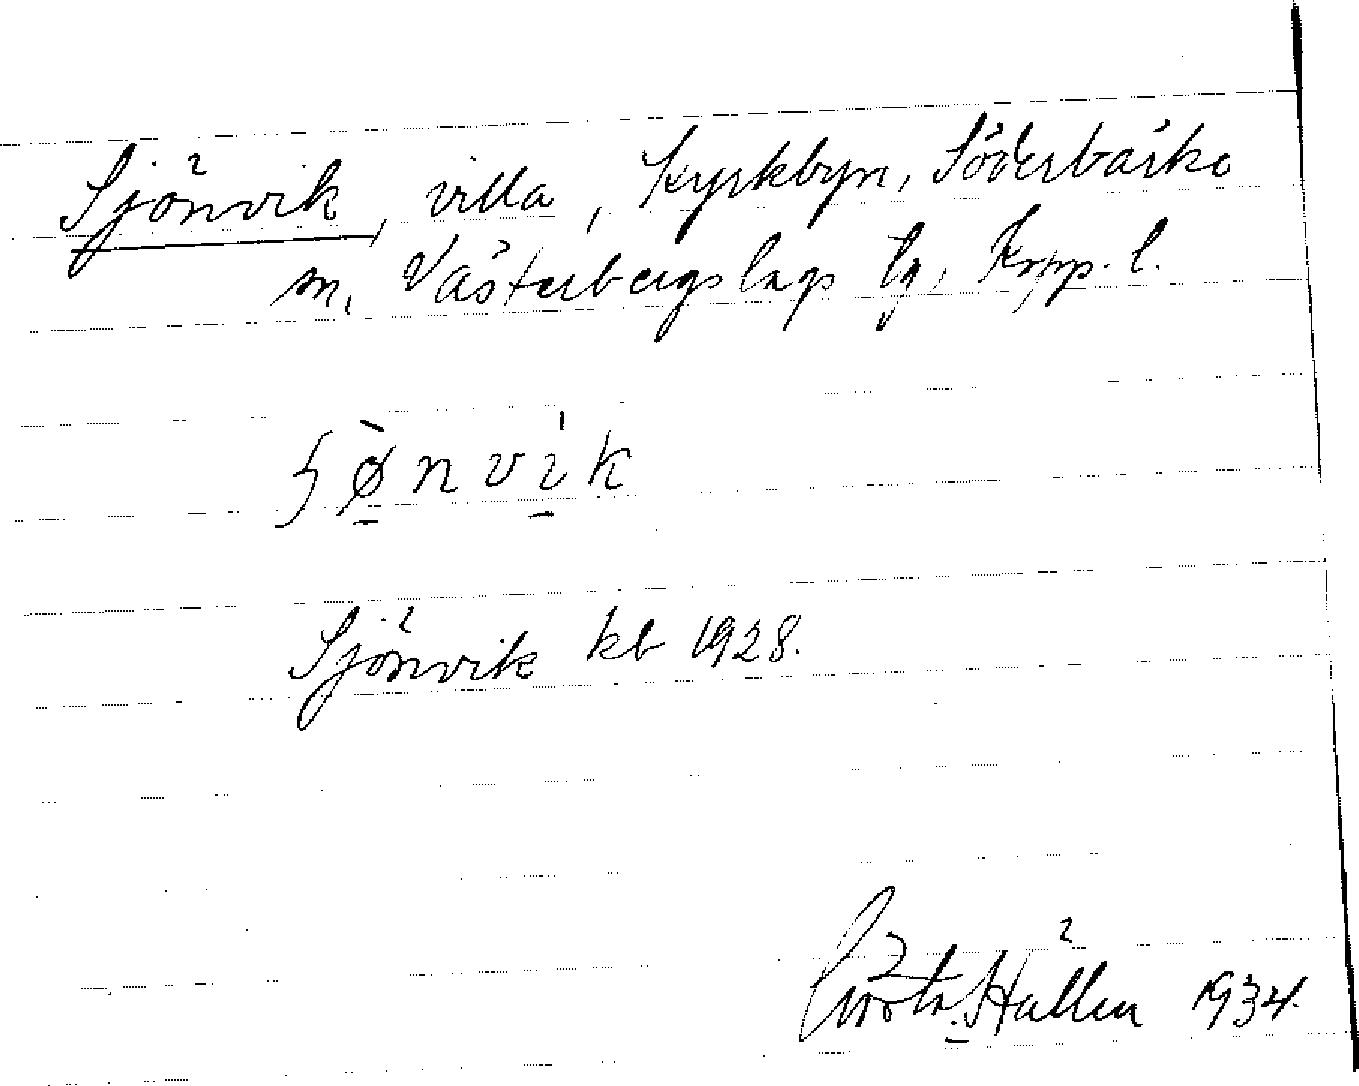 Sjönvik, villa, Kyrkbyn, Söderbärke
m, Västerbergslags tg, Kopp. l.
ʃø̀nvik
Sjönvik kb 1928.
Gösta Hallén 1934.